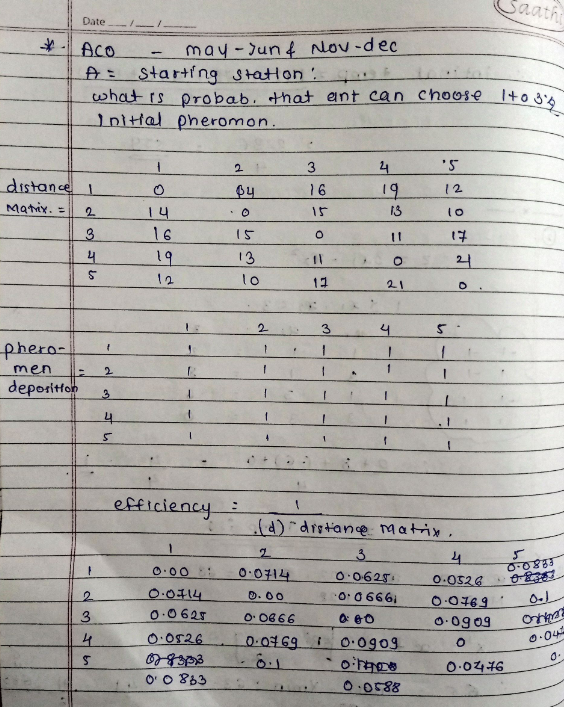 Saathi
Date __/__/____
* ACO - may-Jun & Nov-dec
A = starting station.
what is probab. that ant can choose 1 to 3 ?
Initial pheromon.
1 2 3 4 5
distance 1 0 14 16 19 12
Matrix. = 2 14 0 15 13 10
3 16 15 0 11 17
4 19 13 11 0 21
5 12 10 17 21 0
1 2 3 4 5
phero- 1 1 1 1 1 1
men = 2 1 1 1 1 1
deposition 3 1 1 1 1 1
4 1 1 1 1 1
5 1 1 1 1 1
efficiency = 1
(d) distance matrix.
1 2 3 4 5
1 0.00 0.0714 0.0625 0.0526 0.0833
2 0.0714 0.00 0.0666 0.0769 0.1
3 0.0625 0.0666 0.00 0.0909
4 0.0526 0.0769 0.0909 0 0.04
5 0.1 0.0476 0.
0.0833 0.0588